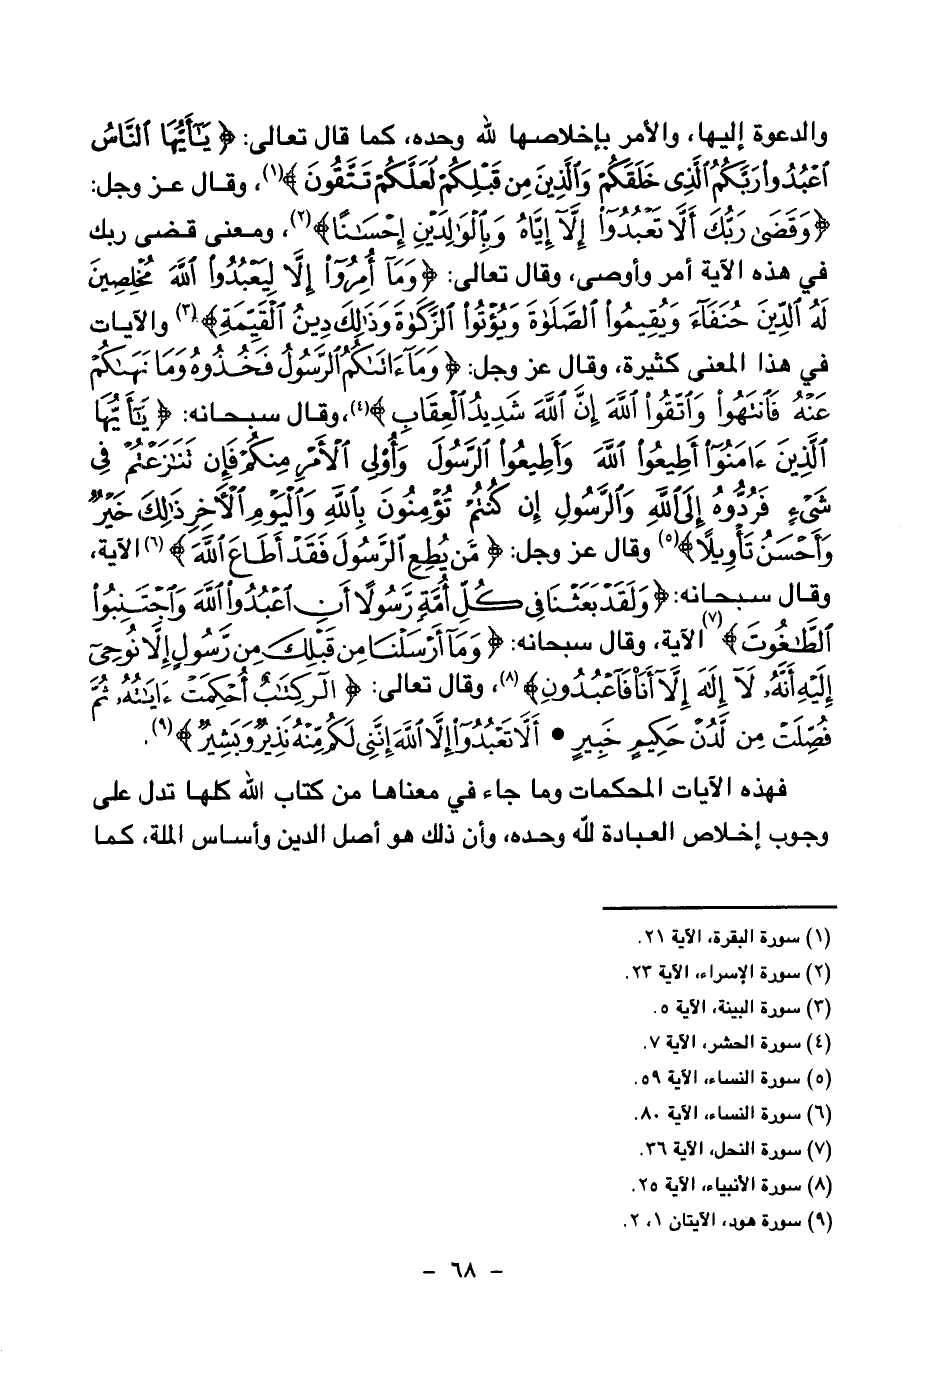 والدعوة إليها، والأمر بإخلاصها لله وحده، كما قال تعالى: ﴿ يَـٰٓأَيُّهَا ٱلنَّاسُ
ٱعْبُدُوا۟ رَبَّكُمُ ٱلَّذِى خَلَقَكُمْ وَٱلَّذِينَ مِن قَبْلِكُمْ لَعَلَّكُمْ تَتَّقُونَ ﴾(١)، وقال عز وجل:
﴿وَقَضَىٰ رَبُّكَ أَلَّا تَعْبُدُوٓا۟ إِلَّآ إِيَّاهُ وَبِٱلْوَٰلِدَيْنِ إِحْسَـٰنًا﴾(٢)، ومعنى قضى ربك
في هذه الآية أمر وأوصى، وقال تعالى: ﴿وَمَآ أُمِرُوٓا۟ إِلَّا لِيَعْبُدُوا۟ ٱللَّهَ مُخْلِصِينَ
لَهُ ٱلدِّينَ حُنَفَآءَ وَيُقِيمُوا۟ ٱلصَّلَوٰةَ وَيُؤْتُوا۟ ٱلزَّكَوٰةَ وَذَٰلِكَ دِينُ ٱلْقَيِّمَةِ﴾(٣) والآيات
في هذا المعنى كثيرة، وقال عز وجل: ﴿ وَمَآ ءَاتَىٰكُمُ ٱلرَّسُولُ فَخُذُوهُ وَمَا نَهَىٰكُمْ
عَنْهُ فَٱنتَهُوا۟ وَٱتَّقُوا۟ ٱللَّهَ إِنَّ ٱللَّهَ شَدِيدُ ٱلْعِقَابِ ﴾(٤)، وقال سبحانه: ﴿ يَـٰٓأَيُّهَا
ٱلَّذِينَ ءَامَنُوٓا۟ أَطِيعُوا۟ ٱللَّهَ وَأَطِيعُوا۟ ٱلرَّسُولَ وَأُو۟لِى ٱلْأَمْرِ مِنكُمْ فَإِن تَنَـٰزَعْتُمْ فِى
شَىْءٍ فَرُدُّوهُ إِلَى ٱللَّهِ وَٱلرَّسُولِ إِن كُنتُمْ تُؤْمِنُونَ بِٱللَّهِ وَٱلْيَوْمِ ٱلْـَٔاخِرِ ذَٰلِكَ خَيْرٌ
وَأَحْسَنُ تَأْوِيلًا﴾(٥) وقال عز وجل: ﴿ مَّن يُطِعِ ٱلرَّسُولَ فَقَدْ أَطَاعَ ٱللَّهَ ﴾(٦) الآية،
وقال سبحانه: ﴿ وَلَقَدْ بَعَثْنَا فِى كُلِّ أُمَّةٍ رَّسُولًا أَنِ ٱعْبُدُوا۟ ٱللَّهَ وَٱجْتَنِبُوا۟
ٱلطَّـٰغُوتَ ﴾(٧) الآية، وقال سبحانه: ﴿ وَمَآ أَرْسَلْنَا مِن قَبْلِكَ مِن رَّسُولٍ إِلَّا نُوحِىٓ
إِلَيْهِ أَنَّهُۥ لَآ إِلَـٰهَ إِلَّآ أَنَا۠ فَٱعْبُدُونِ﴾(٨)، وقال تعالى: ﴿ الٓر كِتَـٰبٌ أُحْكِمَتْ ءَايَـٰتُهُۥ ثُمَّ
فُصِّلَتْ مِن لَّدُنْ حَكِيمٍ خَبِيرٍ • أَلَّا تَعْبُدُوٓا۟ إِلَّا ٱللَّهَ إِنَّنِى لَكُم مِّنْهُ نَذِيرٌ وَبَشِيرٌ ﴾(٩).
فهذه الآيات المحكمات وما جاء في معناها من كتاب الله كلها تدل على
وجوب إخلاص العبادة لله وحده، وأن ذلك هو أصل الدين وأساس الملة، كما
(١) سورة البقرة، الآية ٢١.
(٢) سورة الإسراء، الآية ٢٣.
(٣) سورة البينة، الآية ٥.
(٤) سورة الحشر، الآية ٧.
(٥) سورة النساء، الآية ٥٩.
(٦) سورة النساء، الآية ٨٠.
(٧) سورة النحل، الآية ٣٦.
(٨) سورة الأنبياء، الآية ٢٥.
(٩) سورة هود، الآيتان ١، ٢.
- ٦٨ -